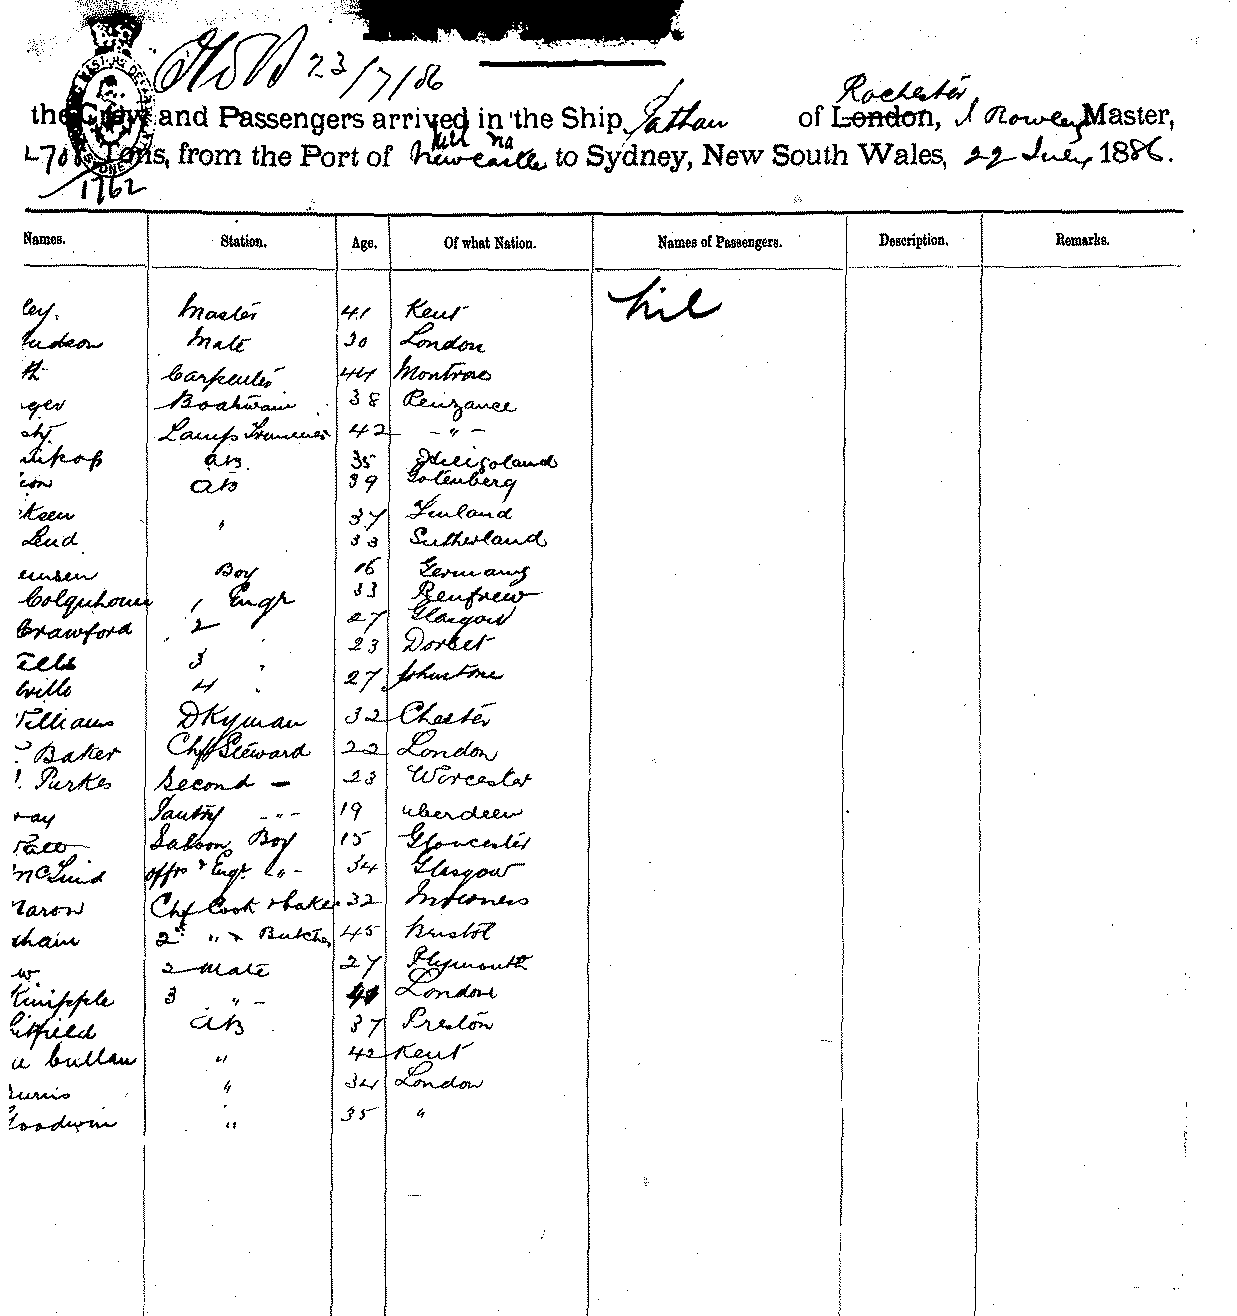 23/7/86
Rochester
the Crew and Passengers arrived in the Ship Tathan of London, J Rowley Master,
Tons, from the Port of Newcastle to Sydney, New South Wales, 22 July 1886.
1762
Names. Station. Age. Of what Nation. Names of Passengers. Description. Remarks.
ley. Master 41 Kent Nil
udson Mate 30 London
th Carpenter 44 Montrose
ger Boatswain 38 Penzance
sty. Lamp Trimmer 42 - " -
kop AB. 35 Heligoland
son AB 39 Gotenberg
ksen " 37 Finland
Leud 33 Sutherland
emsen Boy 16 Germany
Colquhoun 1 Engr 33 Renfrew
Crawford 2 27 Glasgow
ells 3 " 23 Dorset
ville 4 " 27 Johnstone
Williams Dkyman 32 Chester
Baker Chf Steward 22 London
Purkes Second - 23 Worcester
ray Pantry - " - 19 Aberdeen
Saloon Boy 15 Gloucester
offrs & Engr. " - 34 Glasgow
Maron Chf Cook & baker 32 Inverness
sham 2nd " & Butcher 45 Bristol
w 2 Mate 27 Plymouth
Knipple 3 " - London
itfield AB 37 Preston
Cullan " 42 Kent
urris " 34 London
Goodwin " 35 "